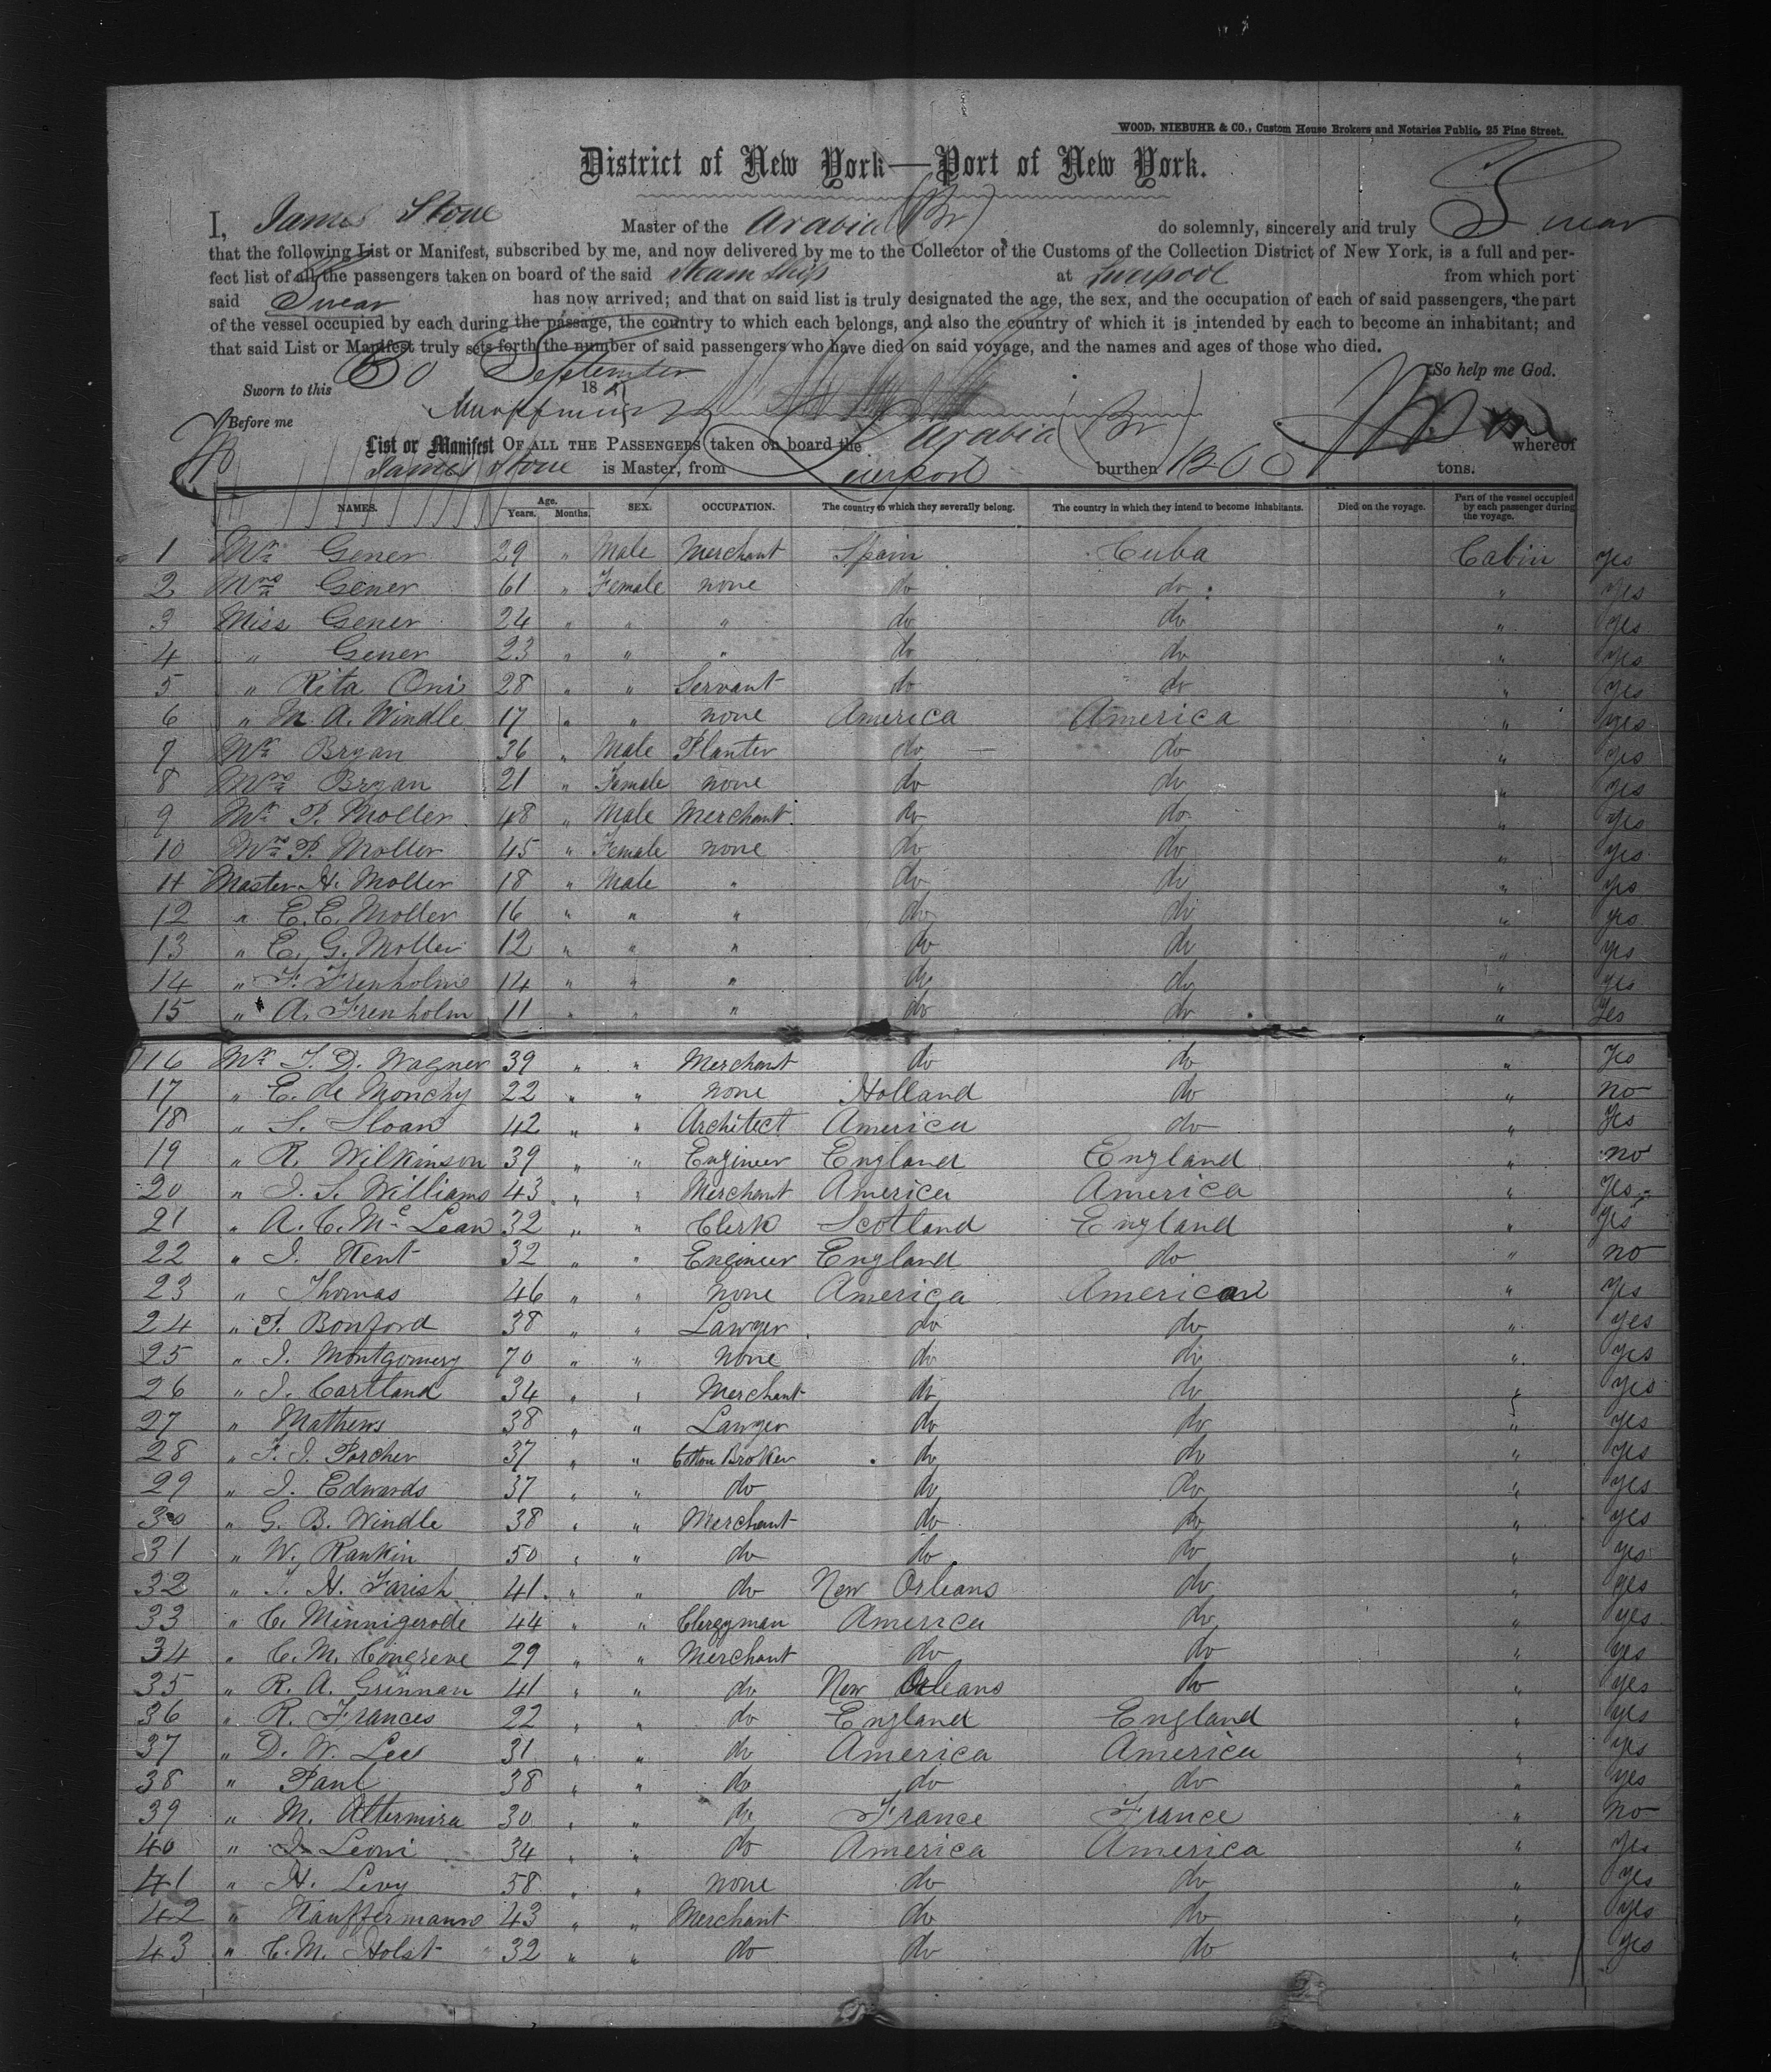 WOOD, NIEBUHR & CO., Custom House Brokers and Notaries Public, 25 Pine Street.
District of New York—Port of New York.
I, James Stone Master of the Arabia (Br) do solemnly, sincerely and truly Swear
that the following List or Manifest, subscribed by me, and now delivered by me to the Collector of the Customs of the Collection District of New York, is a full and per-
fect list of all the passengers taken on board of the said Steam Ship at Liverpool from which port
said Swear has now arrived; and that on said list is truly designated the age, the sex, and the occupation of each of said passengers, the part
of the vessel occupied by each during the passage, the country to which each belongs, and also the country of which it is intended by each to become an inhabitant; and
that said List or Manifest truly sets forth the number of said passengers who have died on said voyage, and the names and ages of those who died.
So help me God.
Sworn to this 30 September 18
Before me
List or Manifest OF ALL THE PASSENGERS taken on board the Arabia (Br) whereof
James Stone is Master, from Liverpool burthen tons.
NAMES. Age. Years. Months. SEX. OCCUPATION. The country to which they severally belong. The country in which they intend to become inhabitants. Died on the voyage. Part of the vessel occupied by each passenger during the voyage.
1 Mr Gener 29 " Male Merchant Spain Cuba Cabin yes
2 Mrs Gener 61 " Female none do do " yes
3 Miss Gener 24 " " " do do " yes
4 " Gener 23 " " " do do " yes
5 " Rita Oni 28 " " Servant do do " yes
6 " M. A. Windle 17 " " none America America " yes
7 Mr Bryan 36 " Male Planter do do " yes
8 Mrs Bryan 21 " Female none do do " yes
9 Mr P. Moller 48 " Male Merchant do do " yes
10 Mrs P. Moller 45 " Female none do do " yes
11 Master H. Moller 18 " Male " do do " yes
12 " E. E. Moller 16 " " " do do " yes
13 " E. G. Moller 12 " " " do do " yes
14 " F. Frenholm 14 " " " do do " yes
15 " A. Frenholm 11 " " " do do " Yes
16 Mr T. D. Wagner 39 " " Merchant do do " Yes
17 " E. de Monchy 22 " " none Holland do " no
18 " S. Sloan 42 " " Architect America do " Yes
19 " R. Wilkinson 39 " " Engineer England England " no
20 " J. S. Williams 43 " " Merchant America America " yes
21 " A. C. Mc Lean 32 " " Clerk Scotland England " yes
22 " J. Kent 32 " " Engineer England do " no
23 " Thomas 46 " " none America American " yes
24 " P. Bonford 38 " " Lawyer do do " yes
25 " J. Montgomery 70 " " none do do " yes
26 " J. Cartland 34 " " Merchant do do " yes
27 " Mathews 38 " " Lawyer do do " yes
28 " F. J. Porcher 37 " " Cotton Broker do do " yes
29 " J. Edwards 37 " " do do do " yes
30 " G. B. Windle 38 " " Merchant do do " yes
31 " W. Rankin 50 " " do do do " yes
32 " J. H. Farish 41 " " do New Orleans do " yes
33 " C. Minnigerode 44 " " Clergyman America do " yes
34 " C. M. Congreve 29 " " Merchant do do " yes
35 " R. A. Grinnan 41 " " do New Orleans do " yes
36 " R. Frances 22 " " do England England " yes
37 " D. W. Lee 31 " " do America America " yes
38 " Paul 38 " " do do do " yes
39 " M. Altermira 30 " " do France France " no
40 " J. Leoni 34 " " do America America " yes
41 " H. Levy 58 " " none do do " yes
42 " Kauffermann 43 " " Merchant do do " yes
43 " C. M. Holst 32 " " do do do " yes